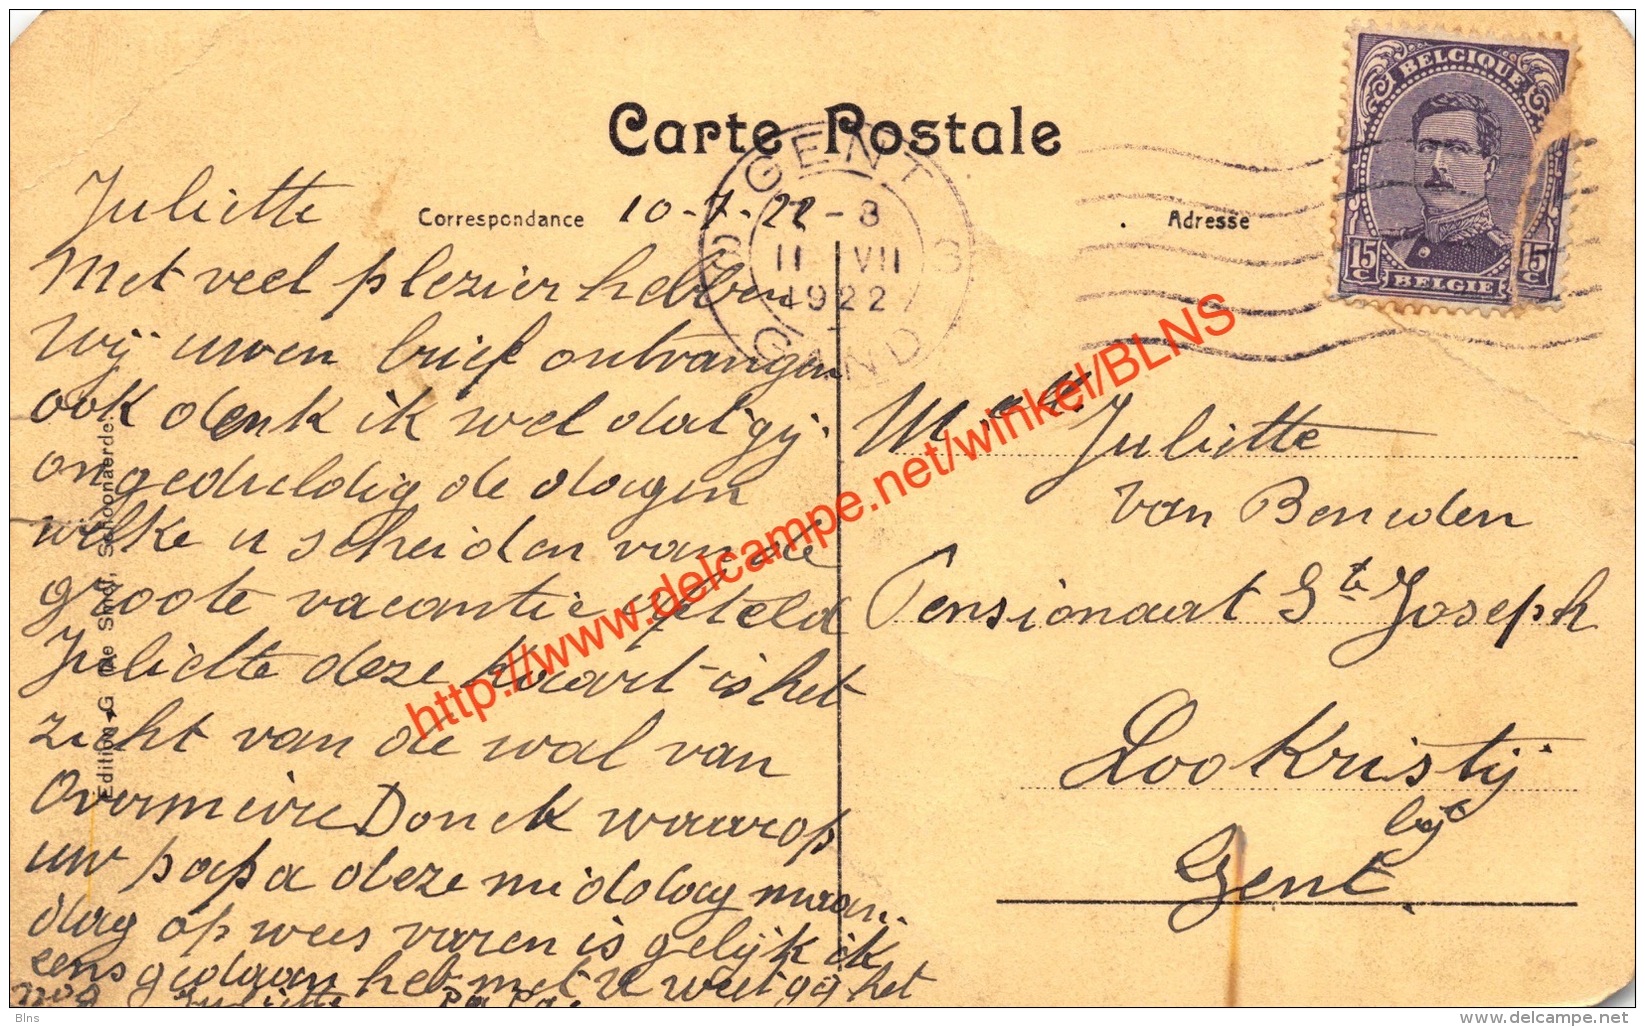 BELGIQUE
15 C
15 C
BELGIE
Carte Postale
GENT 3 GAND
8
11 VII
1922
Correspondance
Adresse
Juliette 10-7-22
Met veel plezier hebben
wij uwen brief ontvangen
ook denk ik wel dat gij
ongeduldig de dagen
welke u scheiden van de
groote vacantie afteld
Juliette deze kaart is het
zicht van de wal van
Overmeire Donck waarop
uw papa deze middag maan-
dag op wees varen is gelijk ik
eens gedaan heb met U weet gij het
Juliette Papa.
2209
Edition G. De Smet, Schoonaerde.
Melle Juliette
Van Beneden
Pensionaat St Joseph
Loo Kristij
bij
Gent.
http://www.delcampe.net/winkel/BLNS
Blns
www.delcampe.net